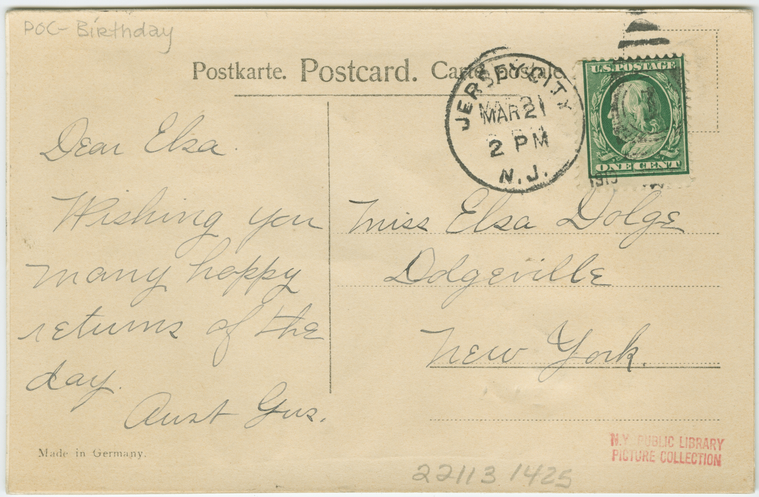 POC- Birthday
Postkarte. Postcard. Carte postale
JERSEY CITY
MAR 21
2 PM
N.J.
U.S. POSTAGE
ONE CENT
Dear Elsa.
Wishing you
many happy
returns of the
day.
Aunt Gus.
Miss Elsa Dolge
Dolgeville
New York.
Made in Germany.
N.Y. PUBLIC LIBRARY
PICTURE COLLECTION
22113 1425